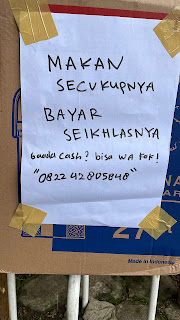 MAKAN
SECUKUPNYA
BAYAR
SEIKHLASNYA
gaada cash? bisa WA kok!
"082242805848"
27
Made in Indonesia